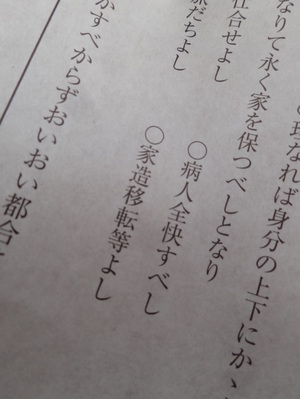 なれば身分の上下にかゝ
なりて永く家を保つべしとなり
仕合せよし　〇病人全快すべし
だちよし　〇家造移転等よし
かすべからずおいおい都合